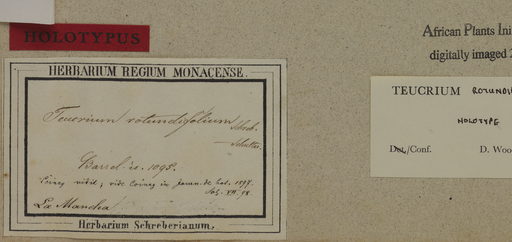 HOLOTYPUS
HERBARIUM REGIUM MONACENSE.
Teucrium rotundifolium Schreb.
Barrel. ic. 1095.
vidit, vide Coincy in journ. de bot. 1897
La Mancha
Herbarium Schreberianum.
African Plants Ini
digitally imaged 2
TEUCRIUM ROTUNDI
HOLOTYPE
Det./Conf. D. Woo